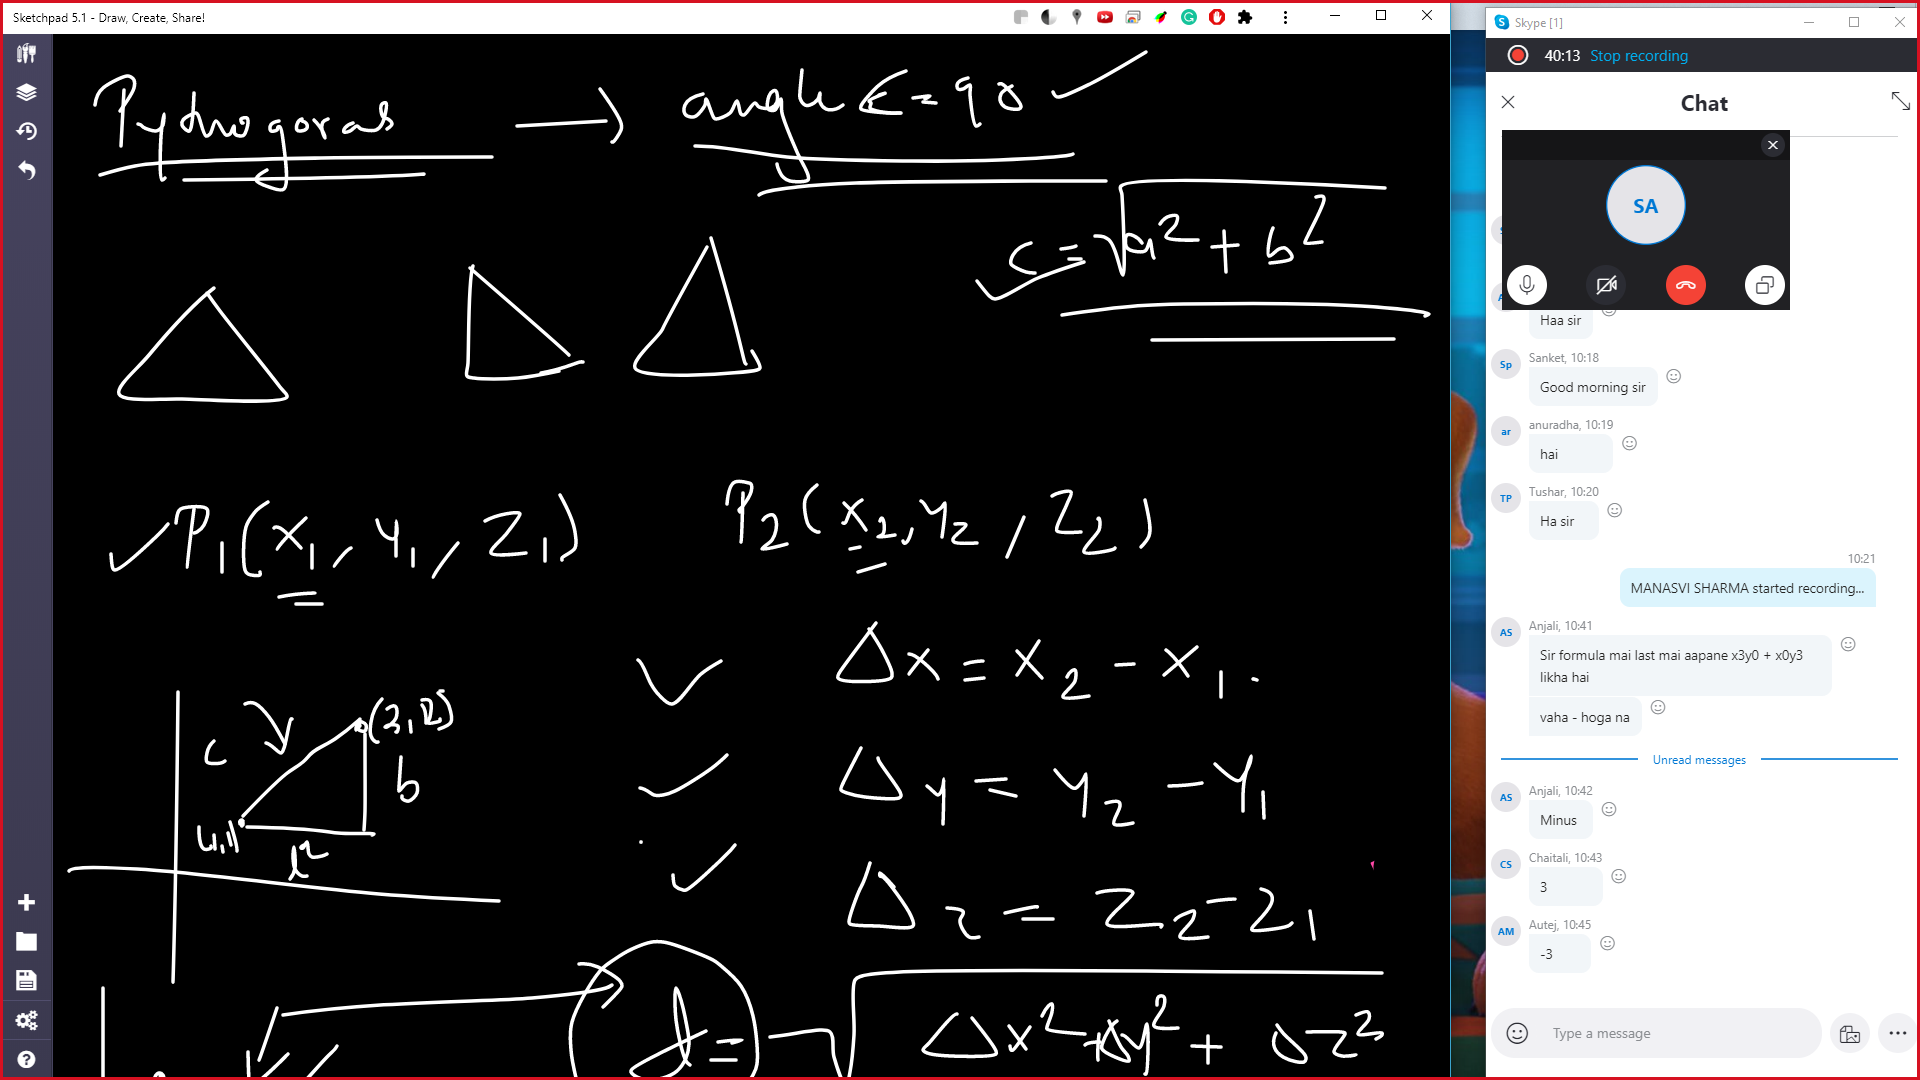 Sketchpad 5.1 - Draw, Create, Share!
Pythogoras → angle C = 90
c = √a² + b²
P₁(x₁, y₁, z₁)
P₂(x₂, y₂, z₂)
Δx = x₂ - x₁.
Δy = y₂ - y₁
Δz = z₂ - z₁
c
b
l = √Δx² + Δy² + Δz²
Skype [1]
40:13 Stop recording
Chat
SA
Haa sir
Sp
Sanket, 10:18
Good morning sir
ar
anuradha, 10:19
hai
TP
Tushar, 10:20
Ha sir
10:21
MANASVI SHARMA started recording...
AS
Anjali, 10:41
Sir formula mai last mai aapane x3y0 + x0y3
likha hai
vaha - hoga na
Unread messages
AS
Anjali, 10:42
Minus
CS
Chaitali, 10:43
3
AM
Autej, 10:45
-3
Type a message